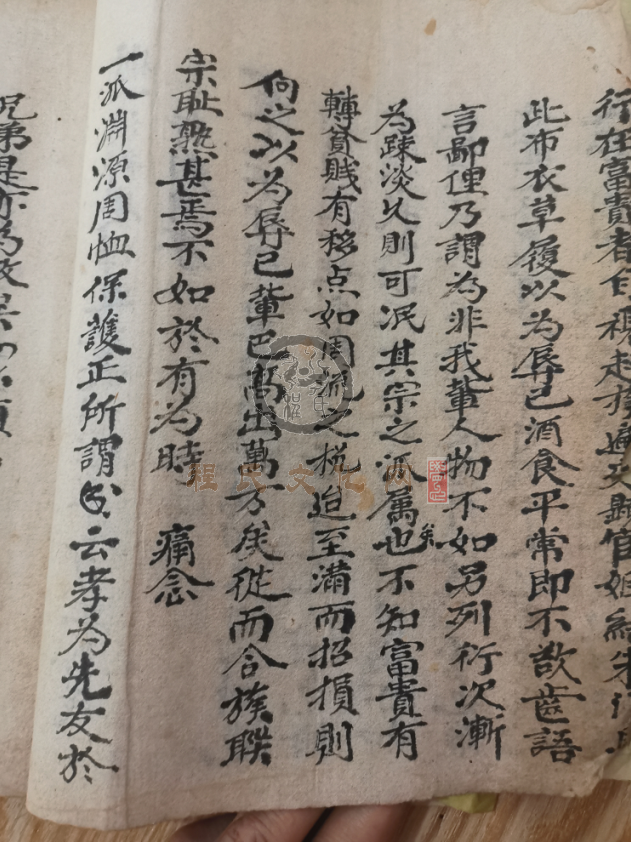 行在富貴者
此布衣草履以為辱已酒食平常即不敢齒語
言鄙俚乃謂為非我輩人物不如另列行次漸
為疎淡久則可泯其宗之派属也矣不知富貴有
轉貧賤有移点如周流之税迨至滿而招損則
向之以為辱已輩巴髙出萬方矣從而合族联
宗耻㷱甚焉不如於有為時 痛念
一派淵源周恤保護正所謂 云孝為先友於
兄弟是亦為政
程氏文化网